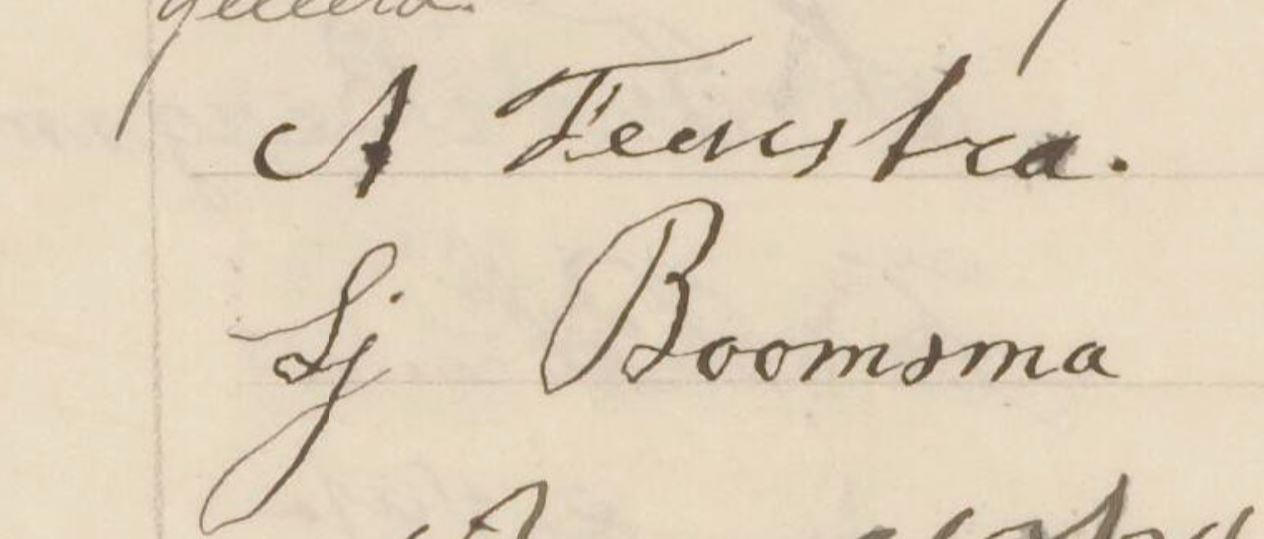 A Feenstra.
Sj Boomsma